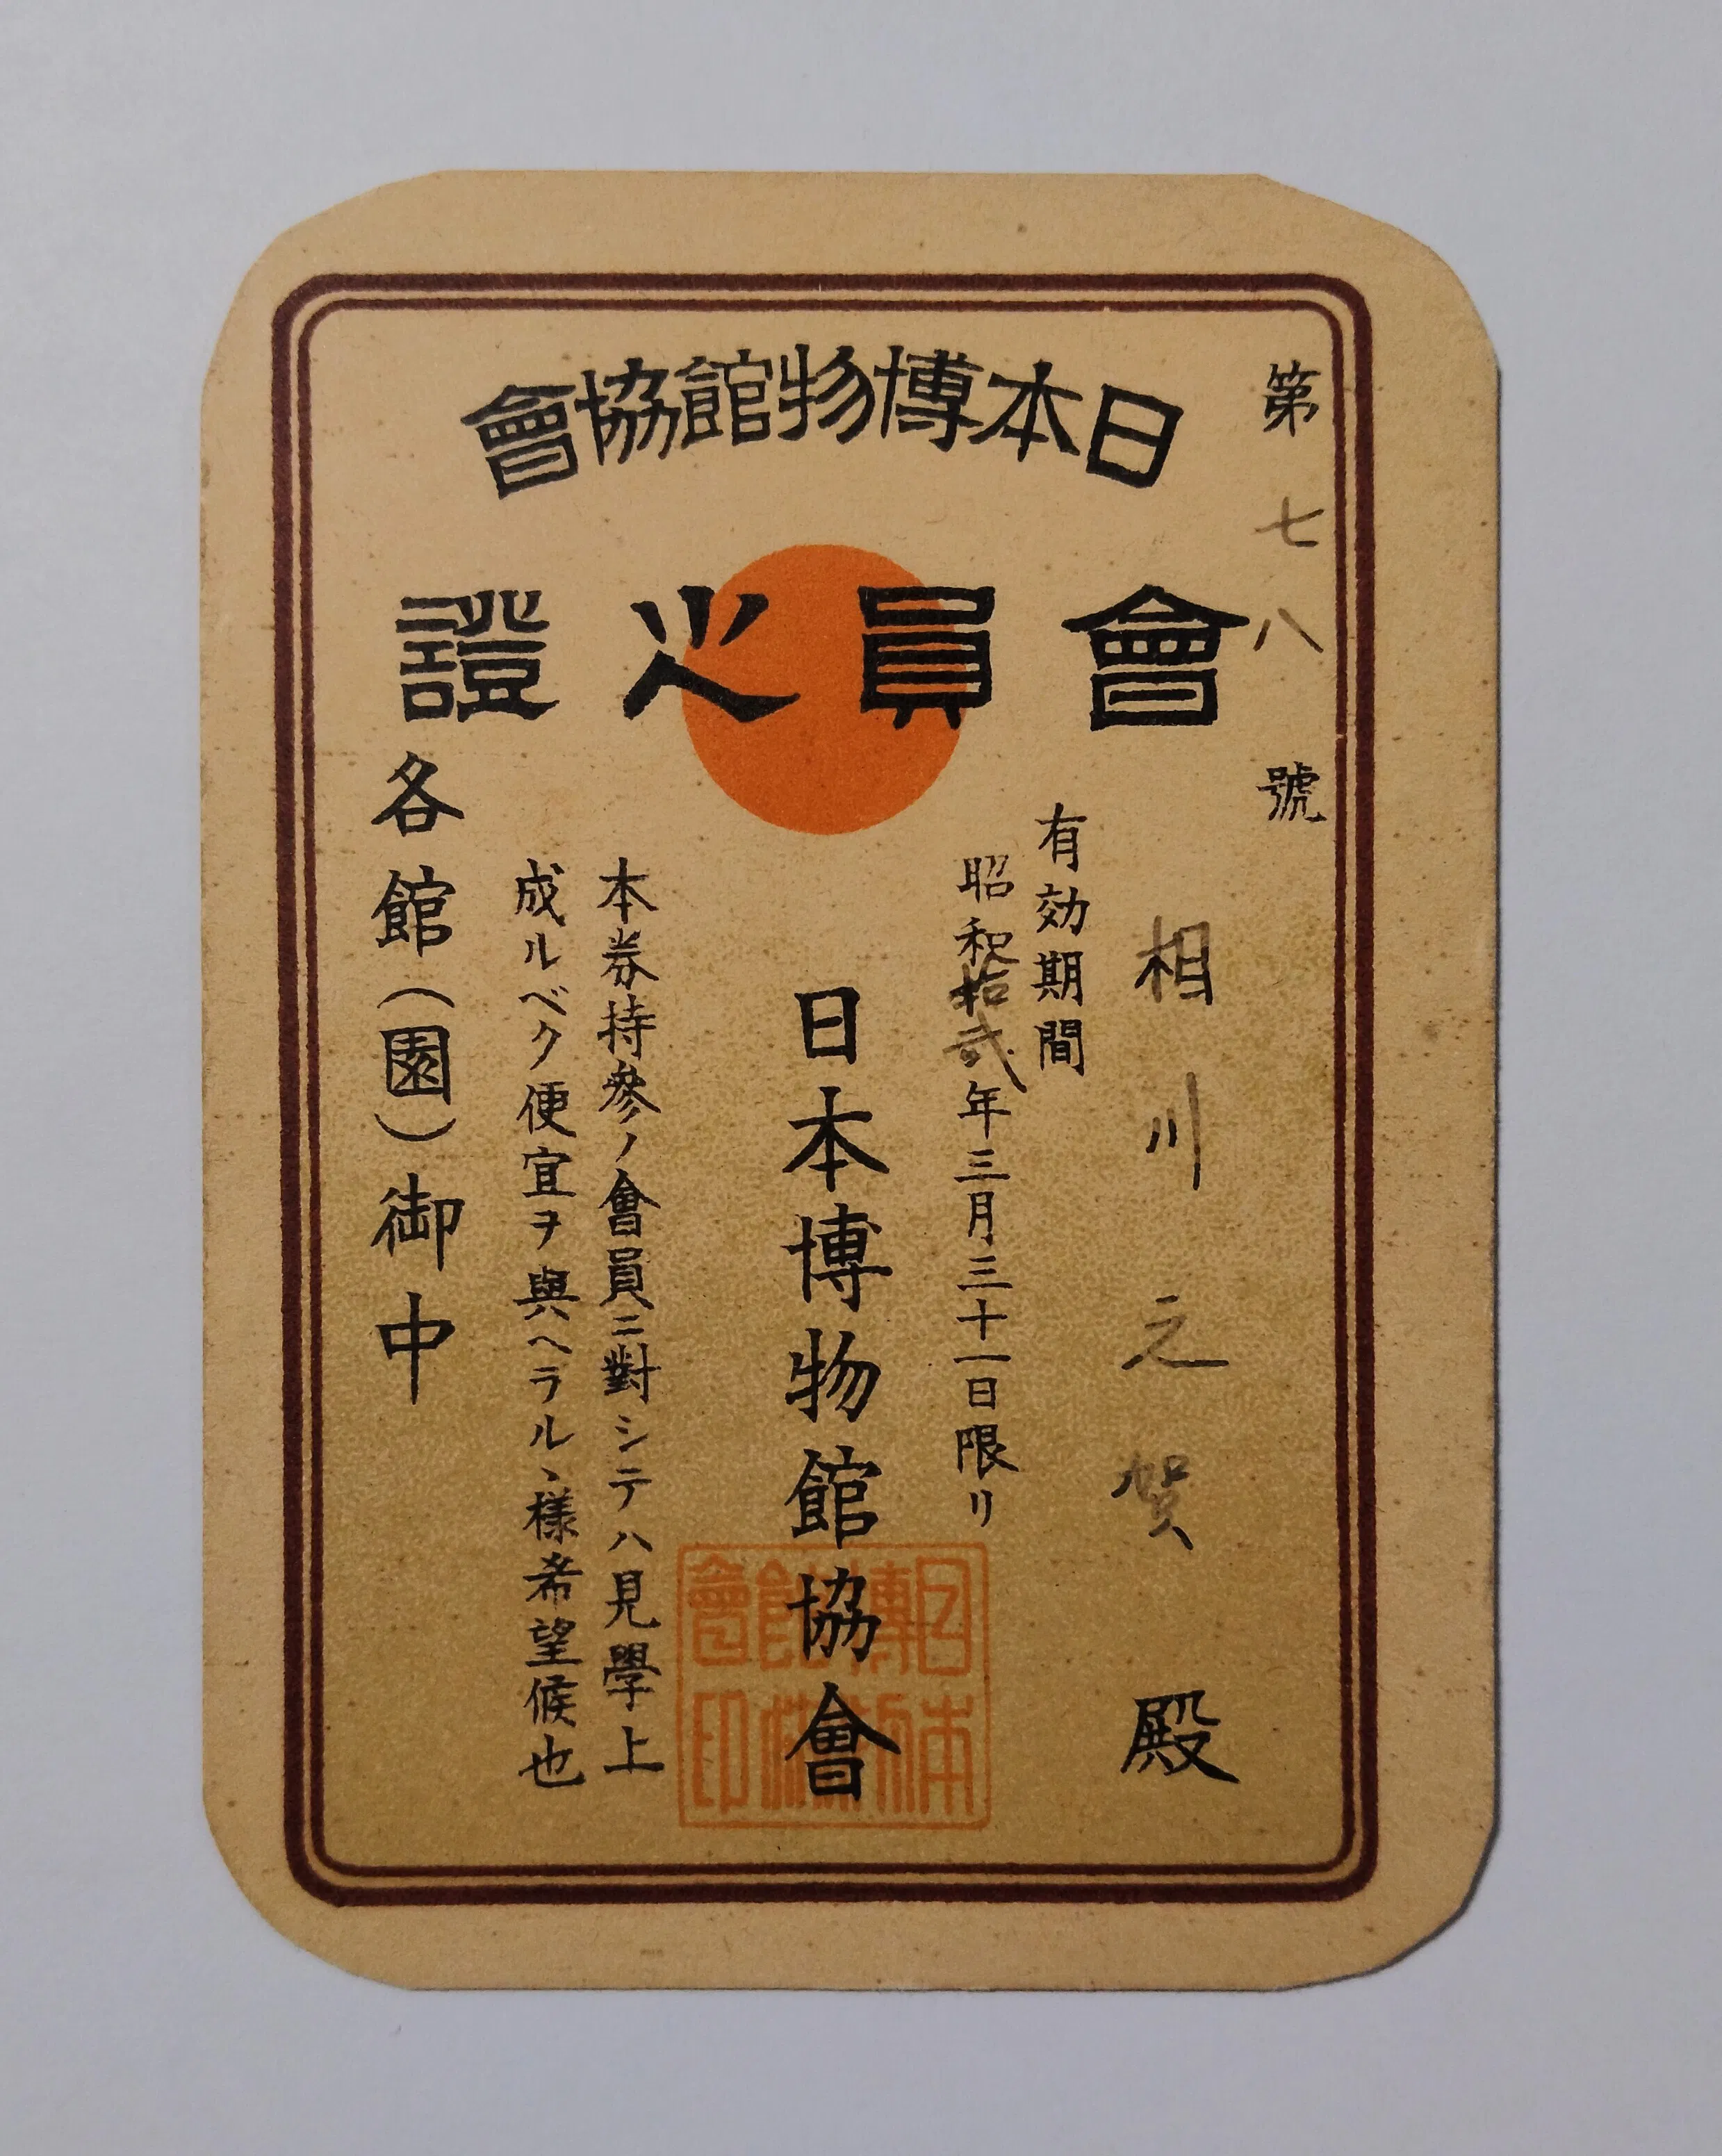 日本博物館協會
會員之證
第七八號
相川之賀殿
有効期間
昭和拾弐年三月三十一日限リ
日本博物館協會
日本博物館協會印
本券持參ノ會員ニ對シテハ見學上
成ルベク便宜ヲ與ヘラルヽ樣希望候也
各館(園)御中